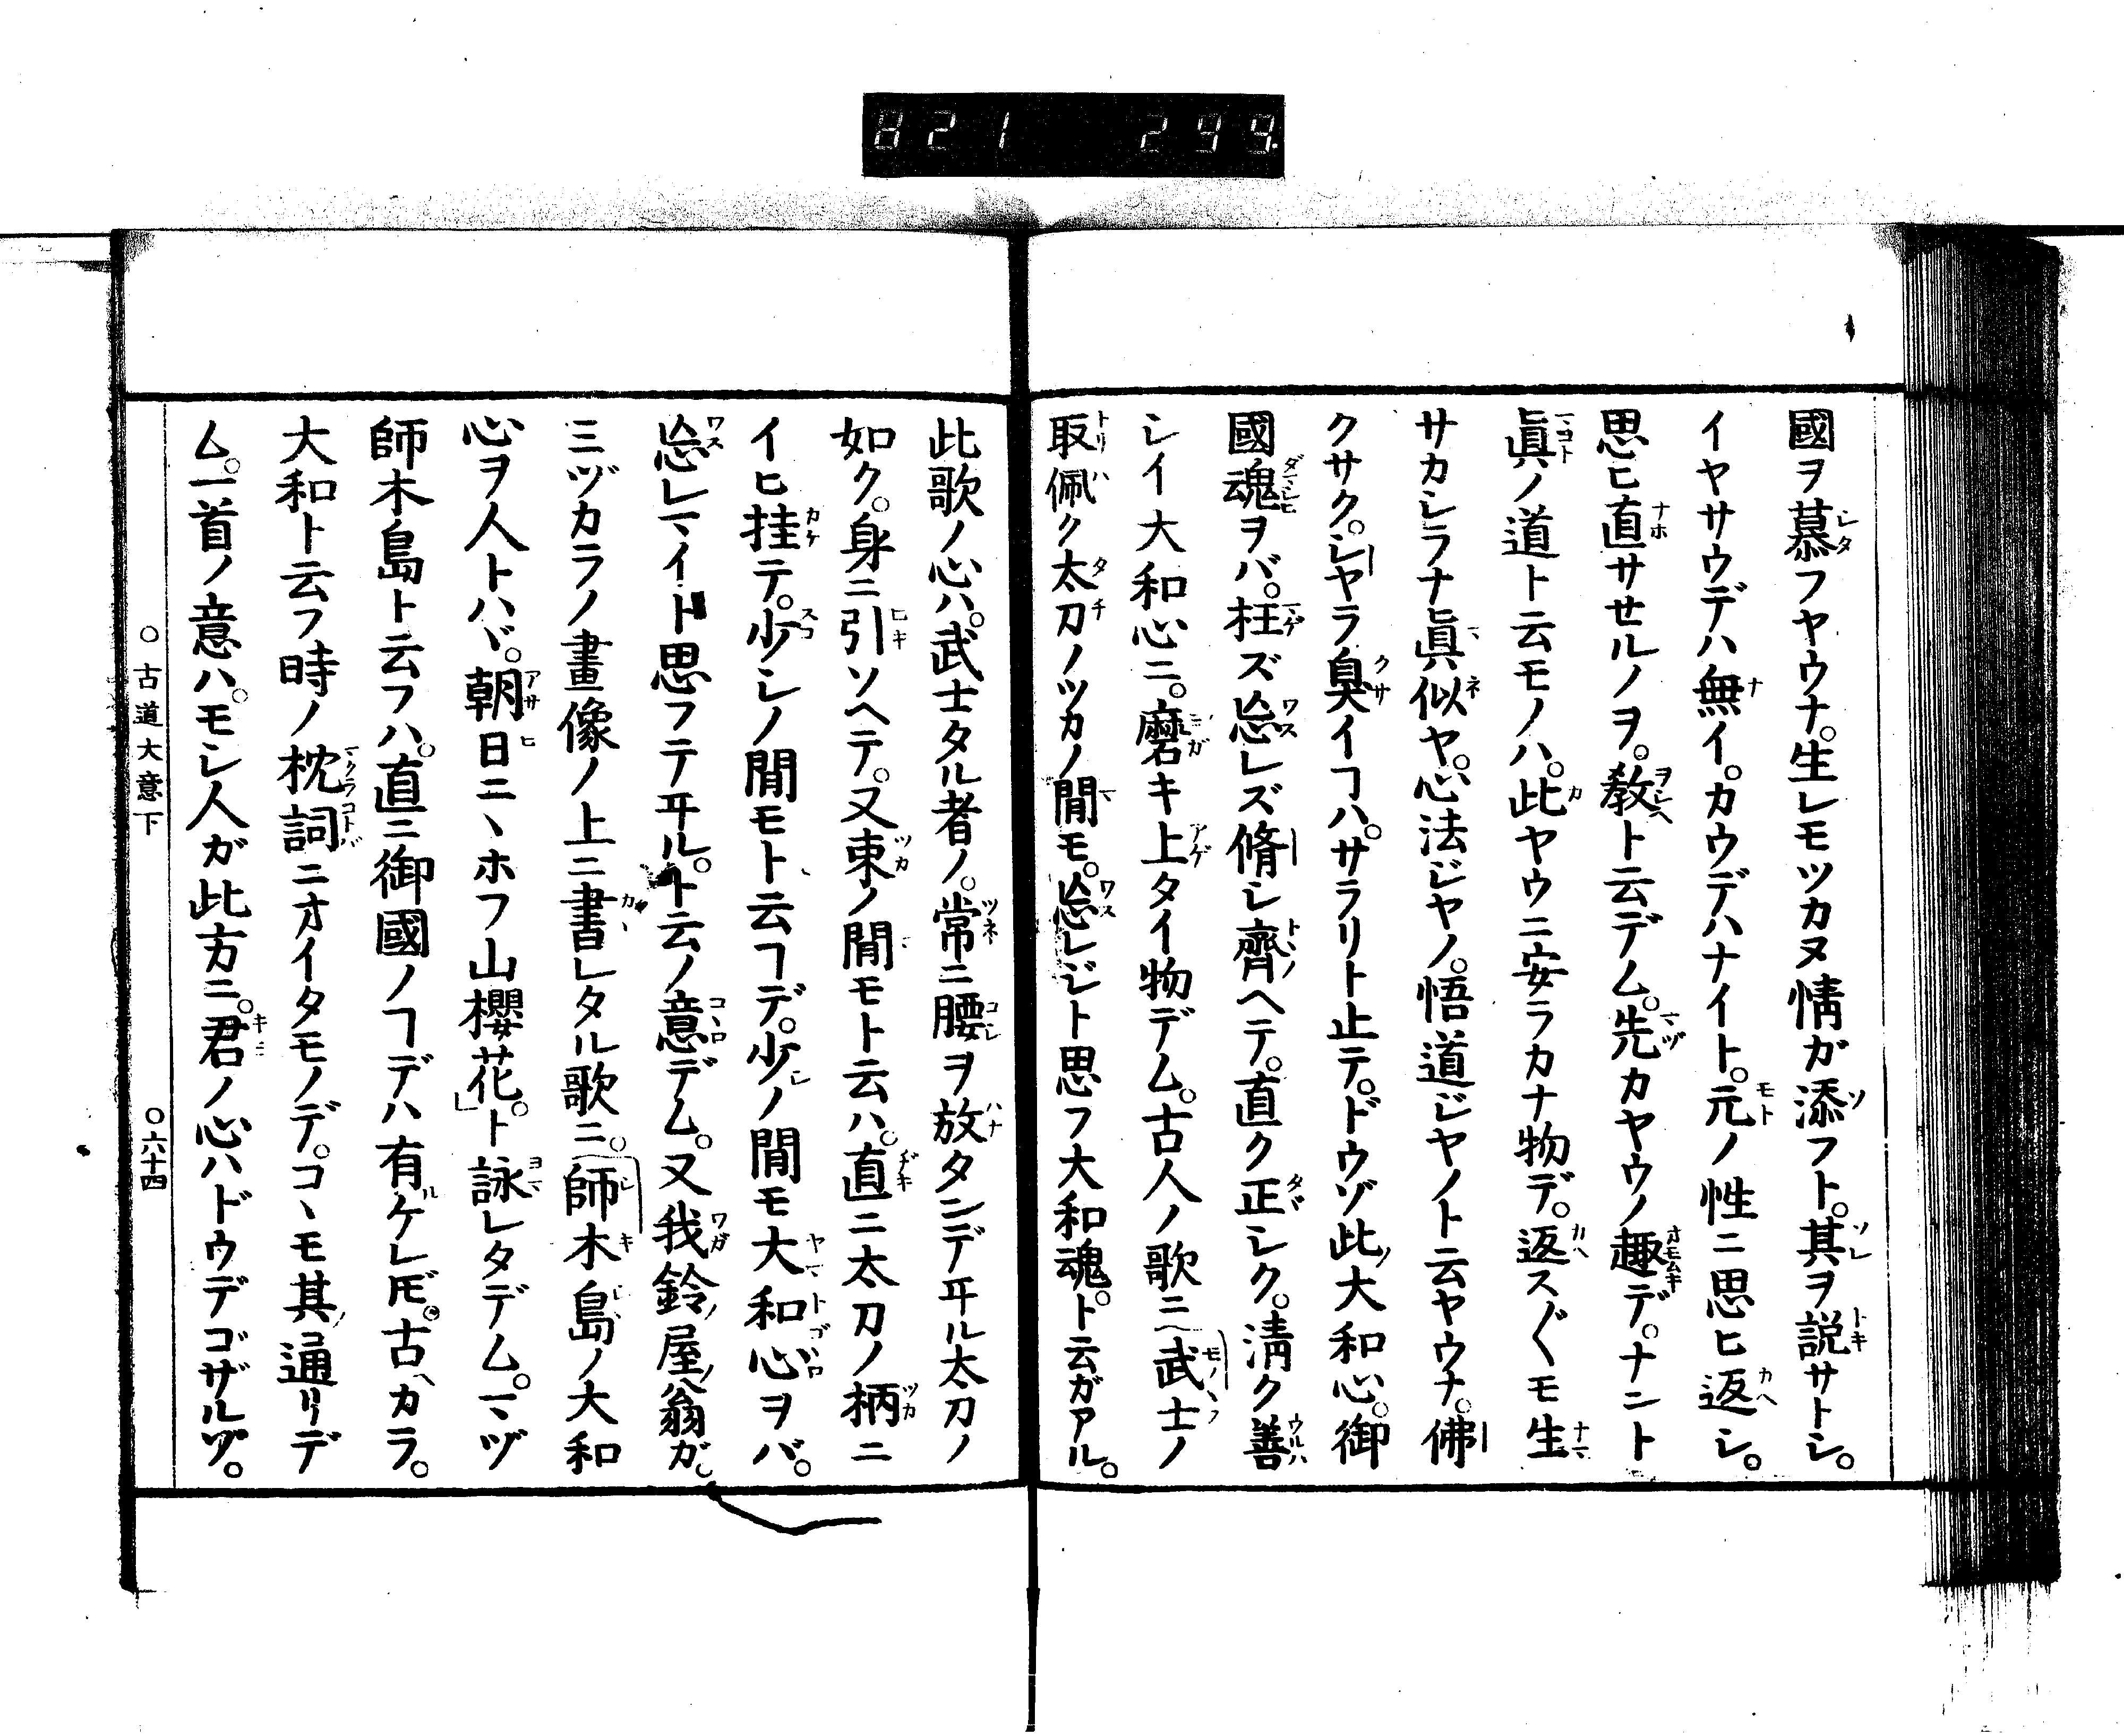 821 299.
國ヲ慕フヤウナ。生レモツカヌ情ガ添フト。其ヲ説サトシ。
イヤサウデハ無イ。カウデハナイト。元ノ性ニ思ヒ返シ。
思ヒ直サセルノヲ。教ト云デム。先カヤウノ趣デ。ナニト
眞ノ道ト云モノハ。此ヤウニ安ラカナ物デ。返ス〴〵モ生
サカシラナ眞似ヤ。心法ジヤノ。悟道ジヤノト云ヤウナ。佛
クサク。シヤラ臭イヿハ。サラリト止テ。ドウゾ此大和心。御
國魂ヲバ。枉ズ忘レズ脩シ齊ヘテ。直ク正シク。淸ク善
シイ大和心ニ。磨キ上タイ物デム。古人ノ歌ニ「武士ノ
取佩ク太刀ノツカノ閒モ。忘レジト思フ大和魂。ト云ガアル。
此歌ノ心ハ。武士タル者ノ。常ニ腰ヲ放タンデヰル太刀ノ
如ク。身ニ引ソヘテ。又束ノ閒モト云ハ。直ニ太刀ノ柄ニ
イヒ挂テ。少シノ閒モト云ヿデ。少ノ閒モ大和心ヲバ。
忘レマイト思フテヰル。ト云ノ意デム。又我鈴屋翁ガ。
ミヅカラノ畫像ノ上ニ書レタル歌ニ。「師木島ノ大和
心ヲ人トハヾ。朝日ニヽホフ山櫻花。」ト詠レタデム。マヅ
師木島ト云フハ。直ニ御國ノヿデハ有ケレ𪜈。古ヘカラ。
大和ト云フ時ノ枕詞ニオイタモノデ。コヽモ其通リデ
ム。一首ノ意ハ。モシ人ガ此方ニ。君ノ心ハドウデゴザルゾ。
○古道大意下
○六十四